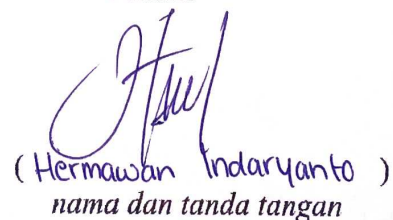 ( Hermawan Indaryanto )
nama dan tanda tangan